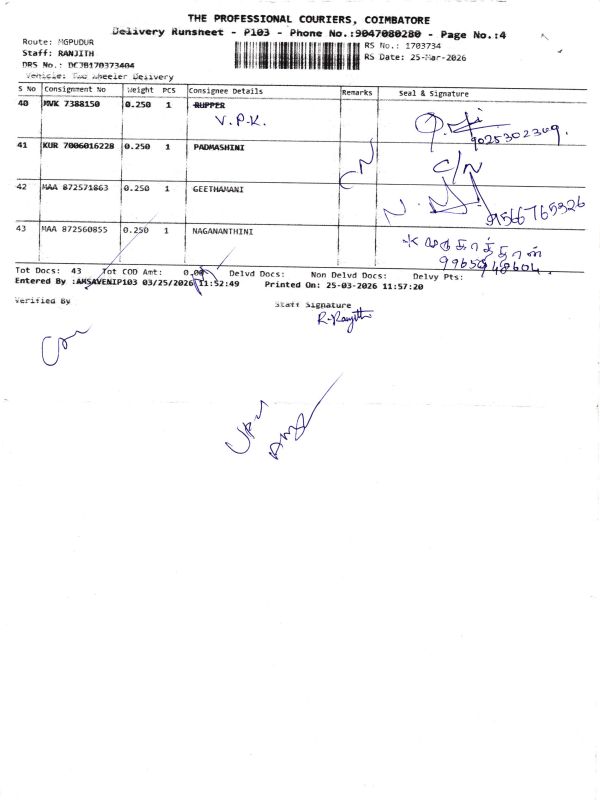 THE PROFESSIONAL COURIERS, COIMBATORE
Delivery Runsheet - P103 - Phone No.:9047080280 - Page No.:4
Route: MGPUDUR
RS No.: 1703734
Staff: RANJITH
RS Date: 25-Mar-2026
DRS No.: DCJB170373404
Vehicle: Two Wheeler Delivery
S No Consignment No Weight PCS Consignee Details Remarks Seal & Signature
40 MVK 7388150 0.250 1 RUPPER
V.P.K.
9025302309.
41 KUR 7006016228 0.250 1 PADMASHINI
C/N
42 MAA 872571863 0.250 1 GEETHAMANI
9566765326
43 MAA 872560855 0.250 1 NAGANANTHINI
Tot Docs: 43 Tot COD Amt: 0.00 Delvd Docs: Non Delvd Docs: Delvy Pts:
Entered By :AMSAVENIP103 03/25/2026 11:52:49 Printed On: 25-03-2026 11:57:20
Verified By
Staff Signature
R-Ranjith